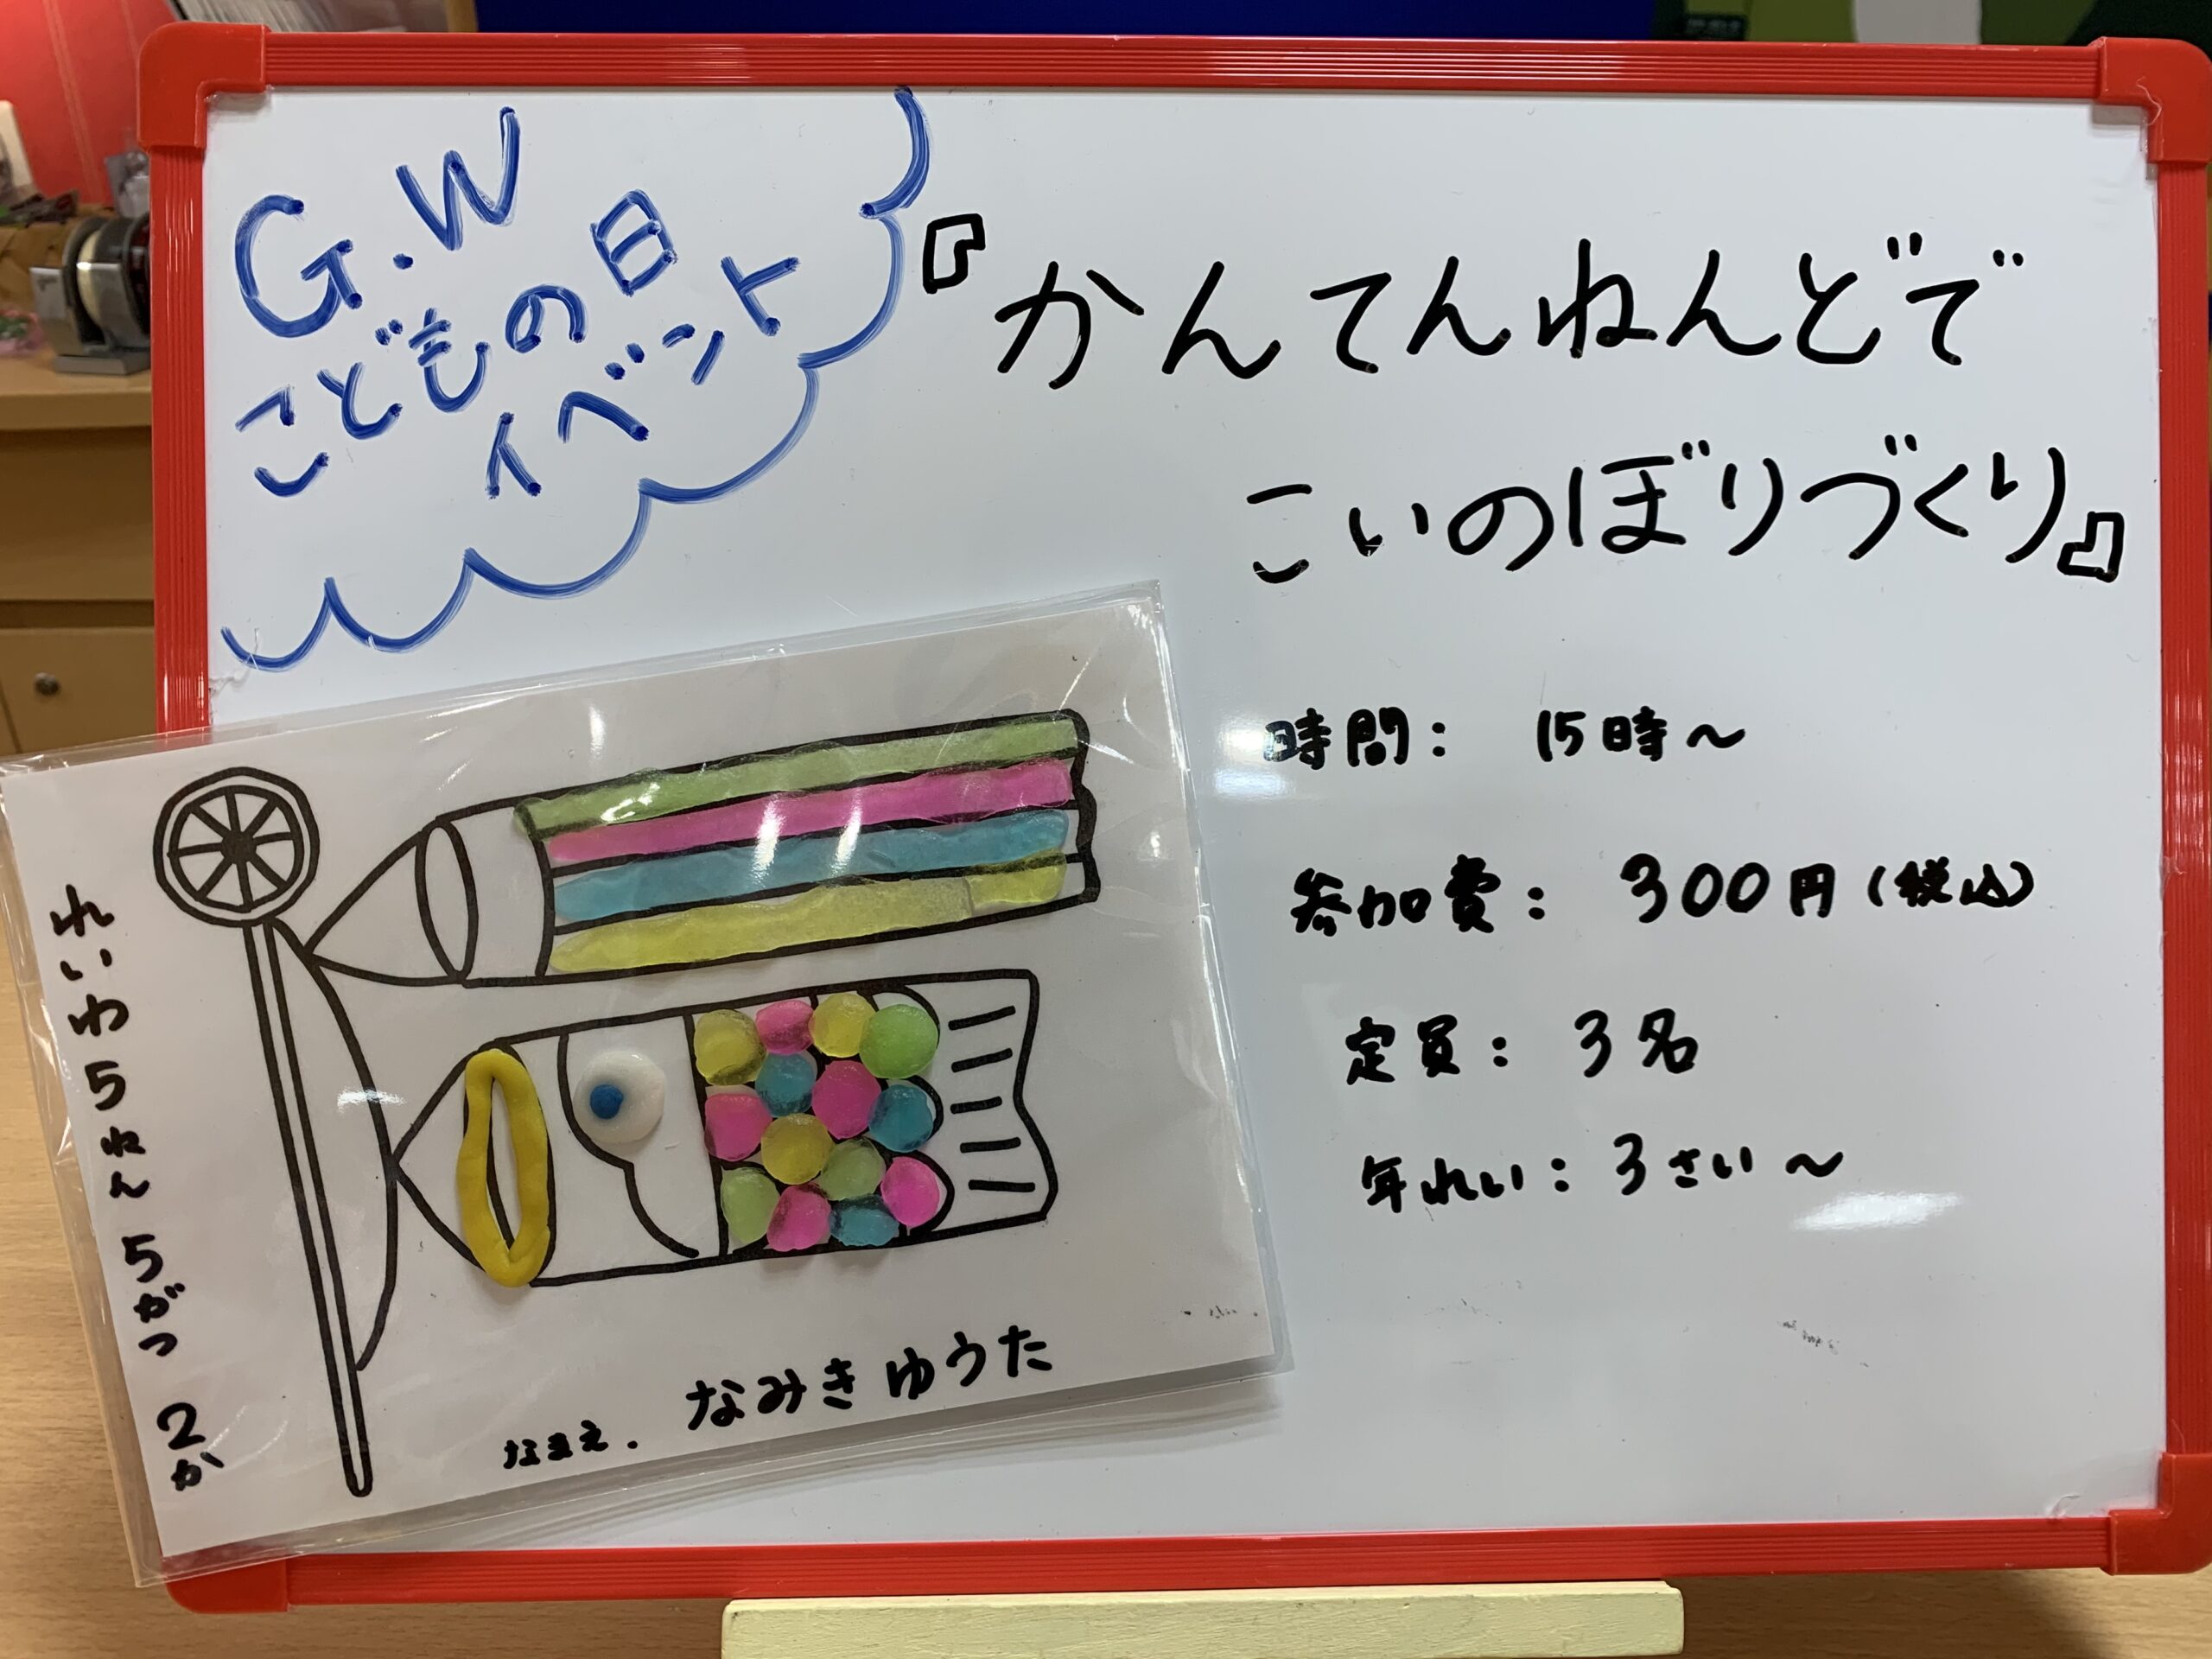 G.W
こどもの日
イベント
『かんてんねんどで
こいのぼりづくり』
時間： 15時〜
参加費： 300円（税込）
定員： 3名
年れい： 3さい〜
れいわ5ねん 5がつ 2か
なまえ. なみきゆうた